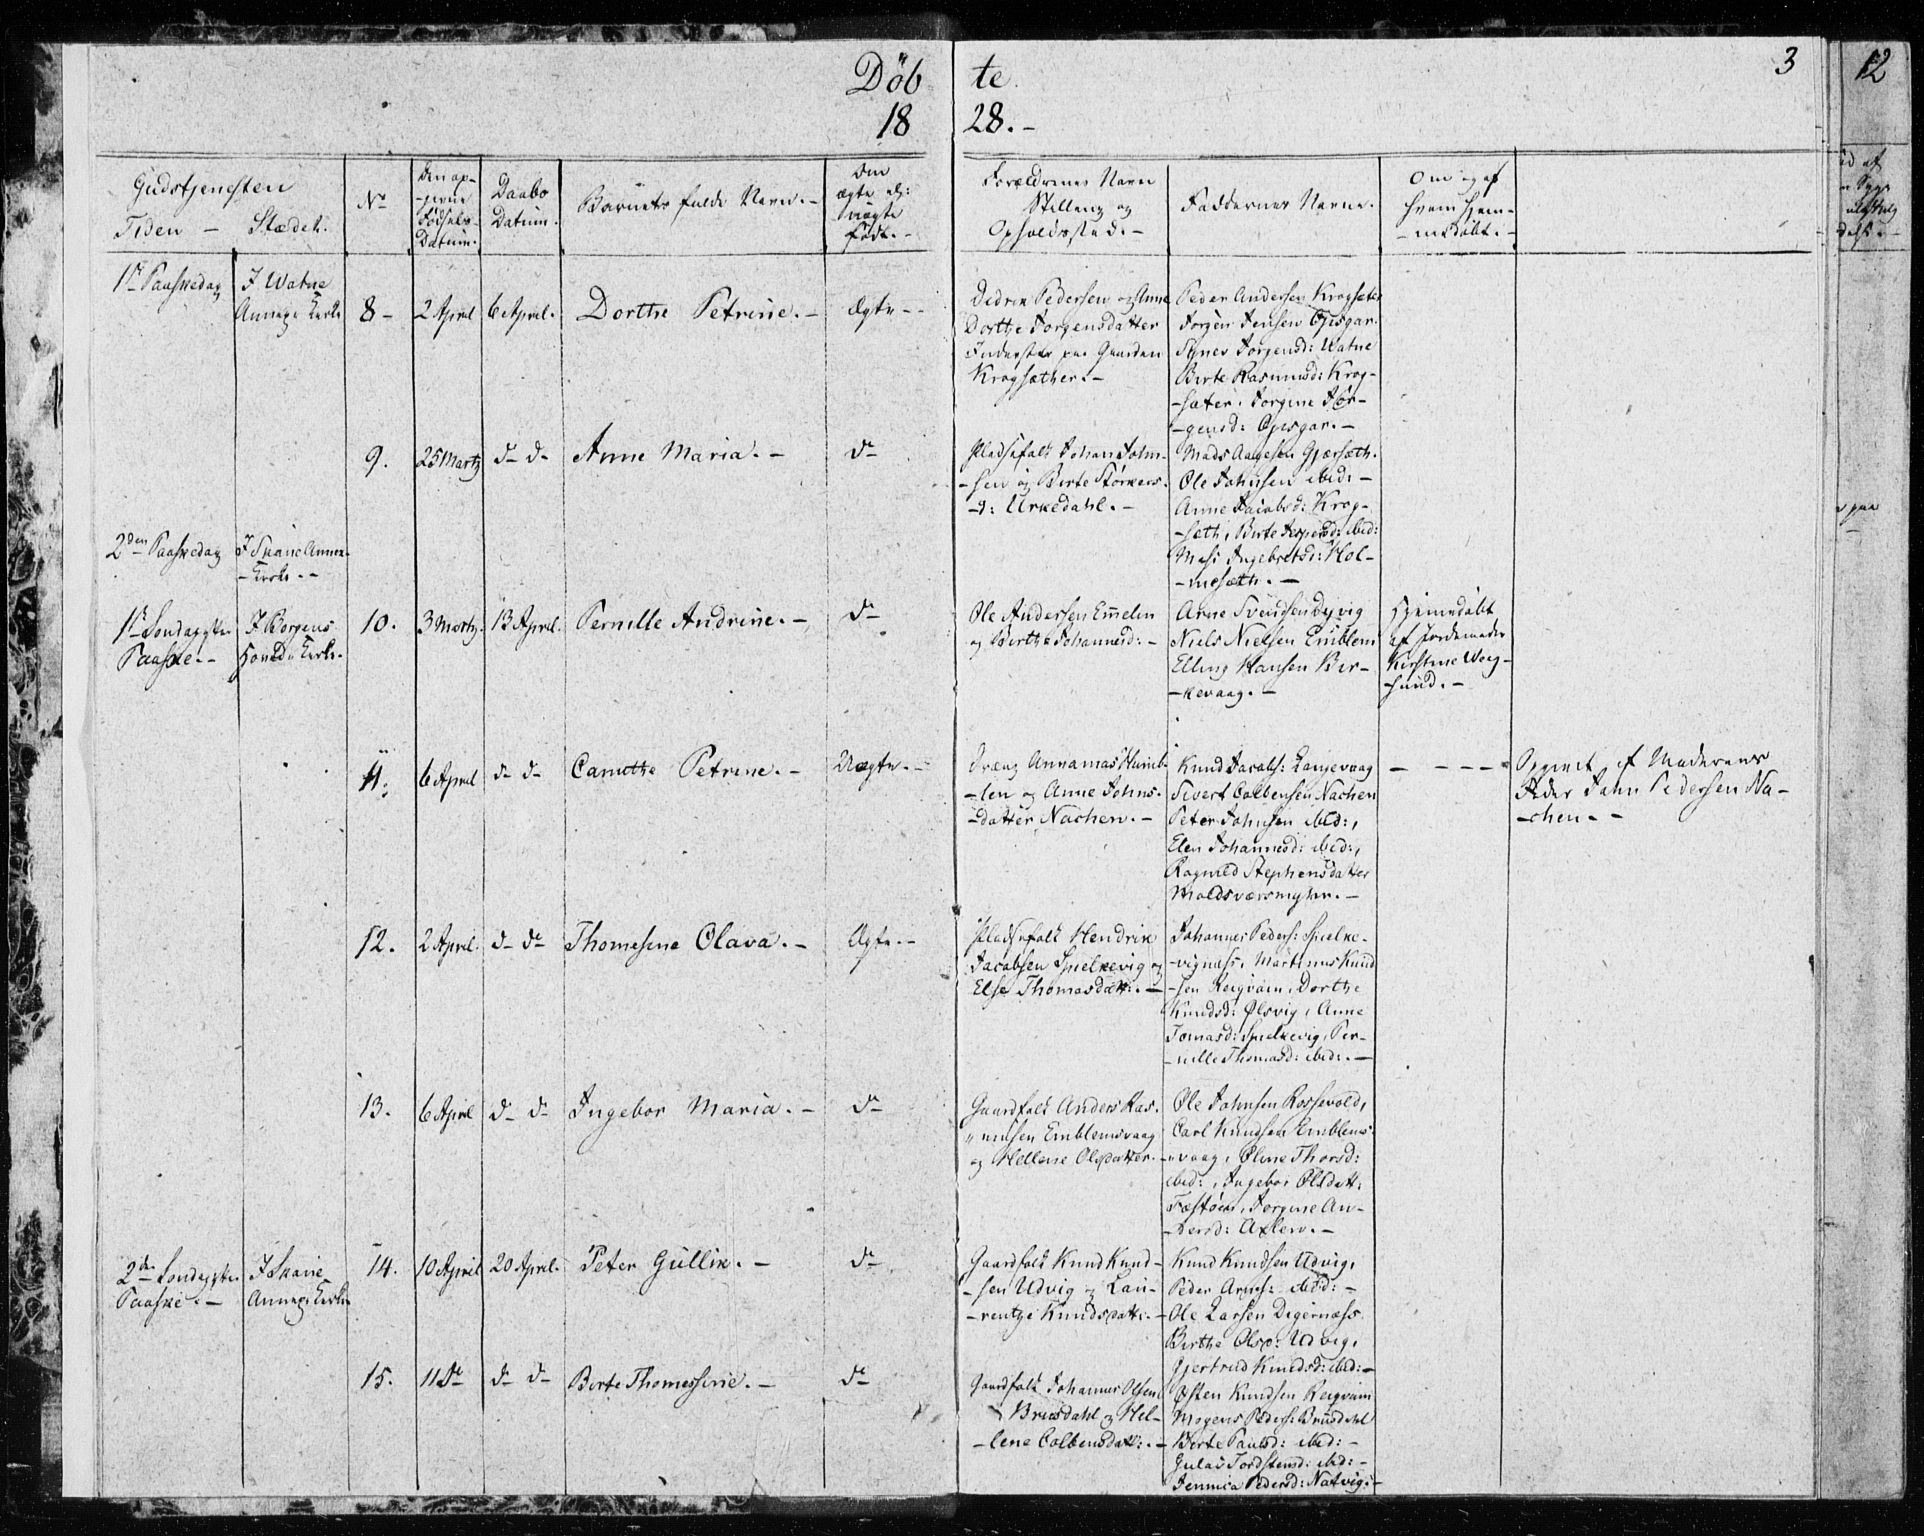 Döb te. 3
18 28.-
12
Gudstjenesten
Tiden - Stædet.
No
Den op-
-givne
Födsels-
Datum.
Daabs
Datum.
Barnets fulde Navn.-
Om
ægte el:
uægte
födt.-
Forældrenes Navn
Stilling og
Opholdssted.-
Faddernes Navne.
Om og af
hvem hjem-
-medöbt.-
1ste Paaskedag
I Watne
Annexe Kirke
8-
2 April
6 April.
Dorthe Petrine.-
Ægte--
Didrik Pedersen og Anne
Dorthe Jorgensdatter
Inderster paa Gaarden
Krogsæther.-
Peder Andersen Krogsæter
Jorgen Jensen Opsgar.
Synev Jorgensd: Watne
Berte Rasmusd: Krog-
-sæter. Jorgine Jör-
-gensd: Opsgar.-
9.
25 Martz
d- d-
Anne Maria.-
do
Pladsefolk Johan John-
-sen og Berte Störkers-
-d: Urkedahl.-
Mads Aagesen Gjærseth.
Ole Johnsen ibid:-
Anne Jacobsd: Krog-
-seth, Berte Jespersd: ibid:
Masi Ingebretsd: Hol-
-meseth.-
2den Paaskedag
I Skaue Annex-
-Kirke.--
1ste Söndag efter
Paaske.--
I Borgens
Hoved Kirke.
10.
3 Martz.
13 April.
Pernille Andrine.-
do
Ole Andersen Emelem
og Berthe Johannesd:-
Arne Svendsen Dyvig
Niels Nielsen Emblem
Elling Hansen Bir-
-kevaag.-
Hjemmedöbt
af Jordemoder
Kirstine Weg-
-sund.-
11.
6 April
d- d-
Camithe Petrine.-
Uægte.-
Dreng Annanias Humb-
-len og Anne Johns-
-datter Nachen.-
Knud Jacobs: Langevaag
Sivert Colbensen Nachen
Peter Johnsen ibid:,
Elen Johannesd: ibid:,
Ragnild Stephensdatter
Moldsværsmyhr.-
- ---
Opgivet af Moderens
Fader John Pedersen Na-
-chen.--
12.
2 April.
d- do
Thomesine Olava.-
Ægte.-
Pladsefolk Hendrik
Jacobsen Spielkevig og
Else Thomasdatt:.-
Johannes Peders: Spielke-
-vignæss, Martinus Knud
-sen Reigvam, Dorthe
Knudsd: Ølsvig, Anne
Tomasd: Spielkevig, Per-
-nille Thomasd: ibid:.-
13.
6 April
d- d-
Ingebor Maria.-
do
Gaardfolk Anders Ras-
-musen Emblemsvaag
og Hellene Olsdatter.-
Ole Johnsen Rossevold,
Carl Knudsen Emblems-
-vaag, Oline Thorsd:
ibid:, Ingebor Olsdatt:
Fæstöen, Jorgine An-
-dersd: Axlen.-
2den Söndag efter
Paaske.-
I Skaue
Annexe Kirke
14.
10 April
20 April.
Peter Gullik.-
do
Gaardfolk Knud Knud-
-sen Udvig og Lau-
-rentze Knudsdatt:.-
Knud Knudsen Udvig,
Peder Arnes: ibid:-
Ole Larsen Digernæss
Birthe Olsd: Udvig,
Gjertrud Knudsd: ibid:-
15.
11 do
d- d-
Berte Thomessine.-
do
Gaardfolk Johannes Olsen
Brusdahl og Hel-
-lene Colbensdatt:.-
Østen Knudsen Reigvam
Mogens Peders: Brusdahl
Berte Paulsd: ibid:-
Gulav Tordstensd: ibid:-
Jennica Pedersd: Natvig.-